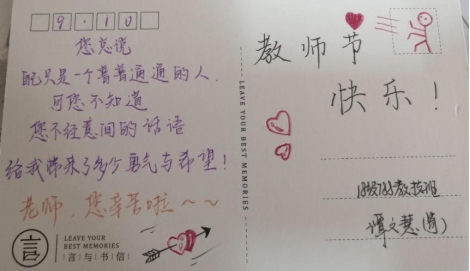 9·10
您总说
配只是一个普普通通的人.
可您不知道
您不经意间的话语
给我带来了多少勇气与希望!
老师,您辛苦啦~~
言
LEAVE YOUR
BEST MEMORIES
言与书信
LEAVE YOUR BEST MEMORIES
教师节
快乐!
教技班
谭文慧